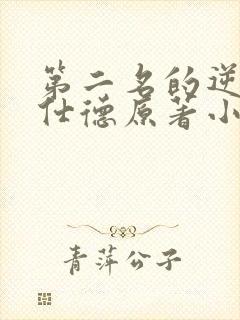 第二名的逆
仕德原著小
青萍公子